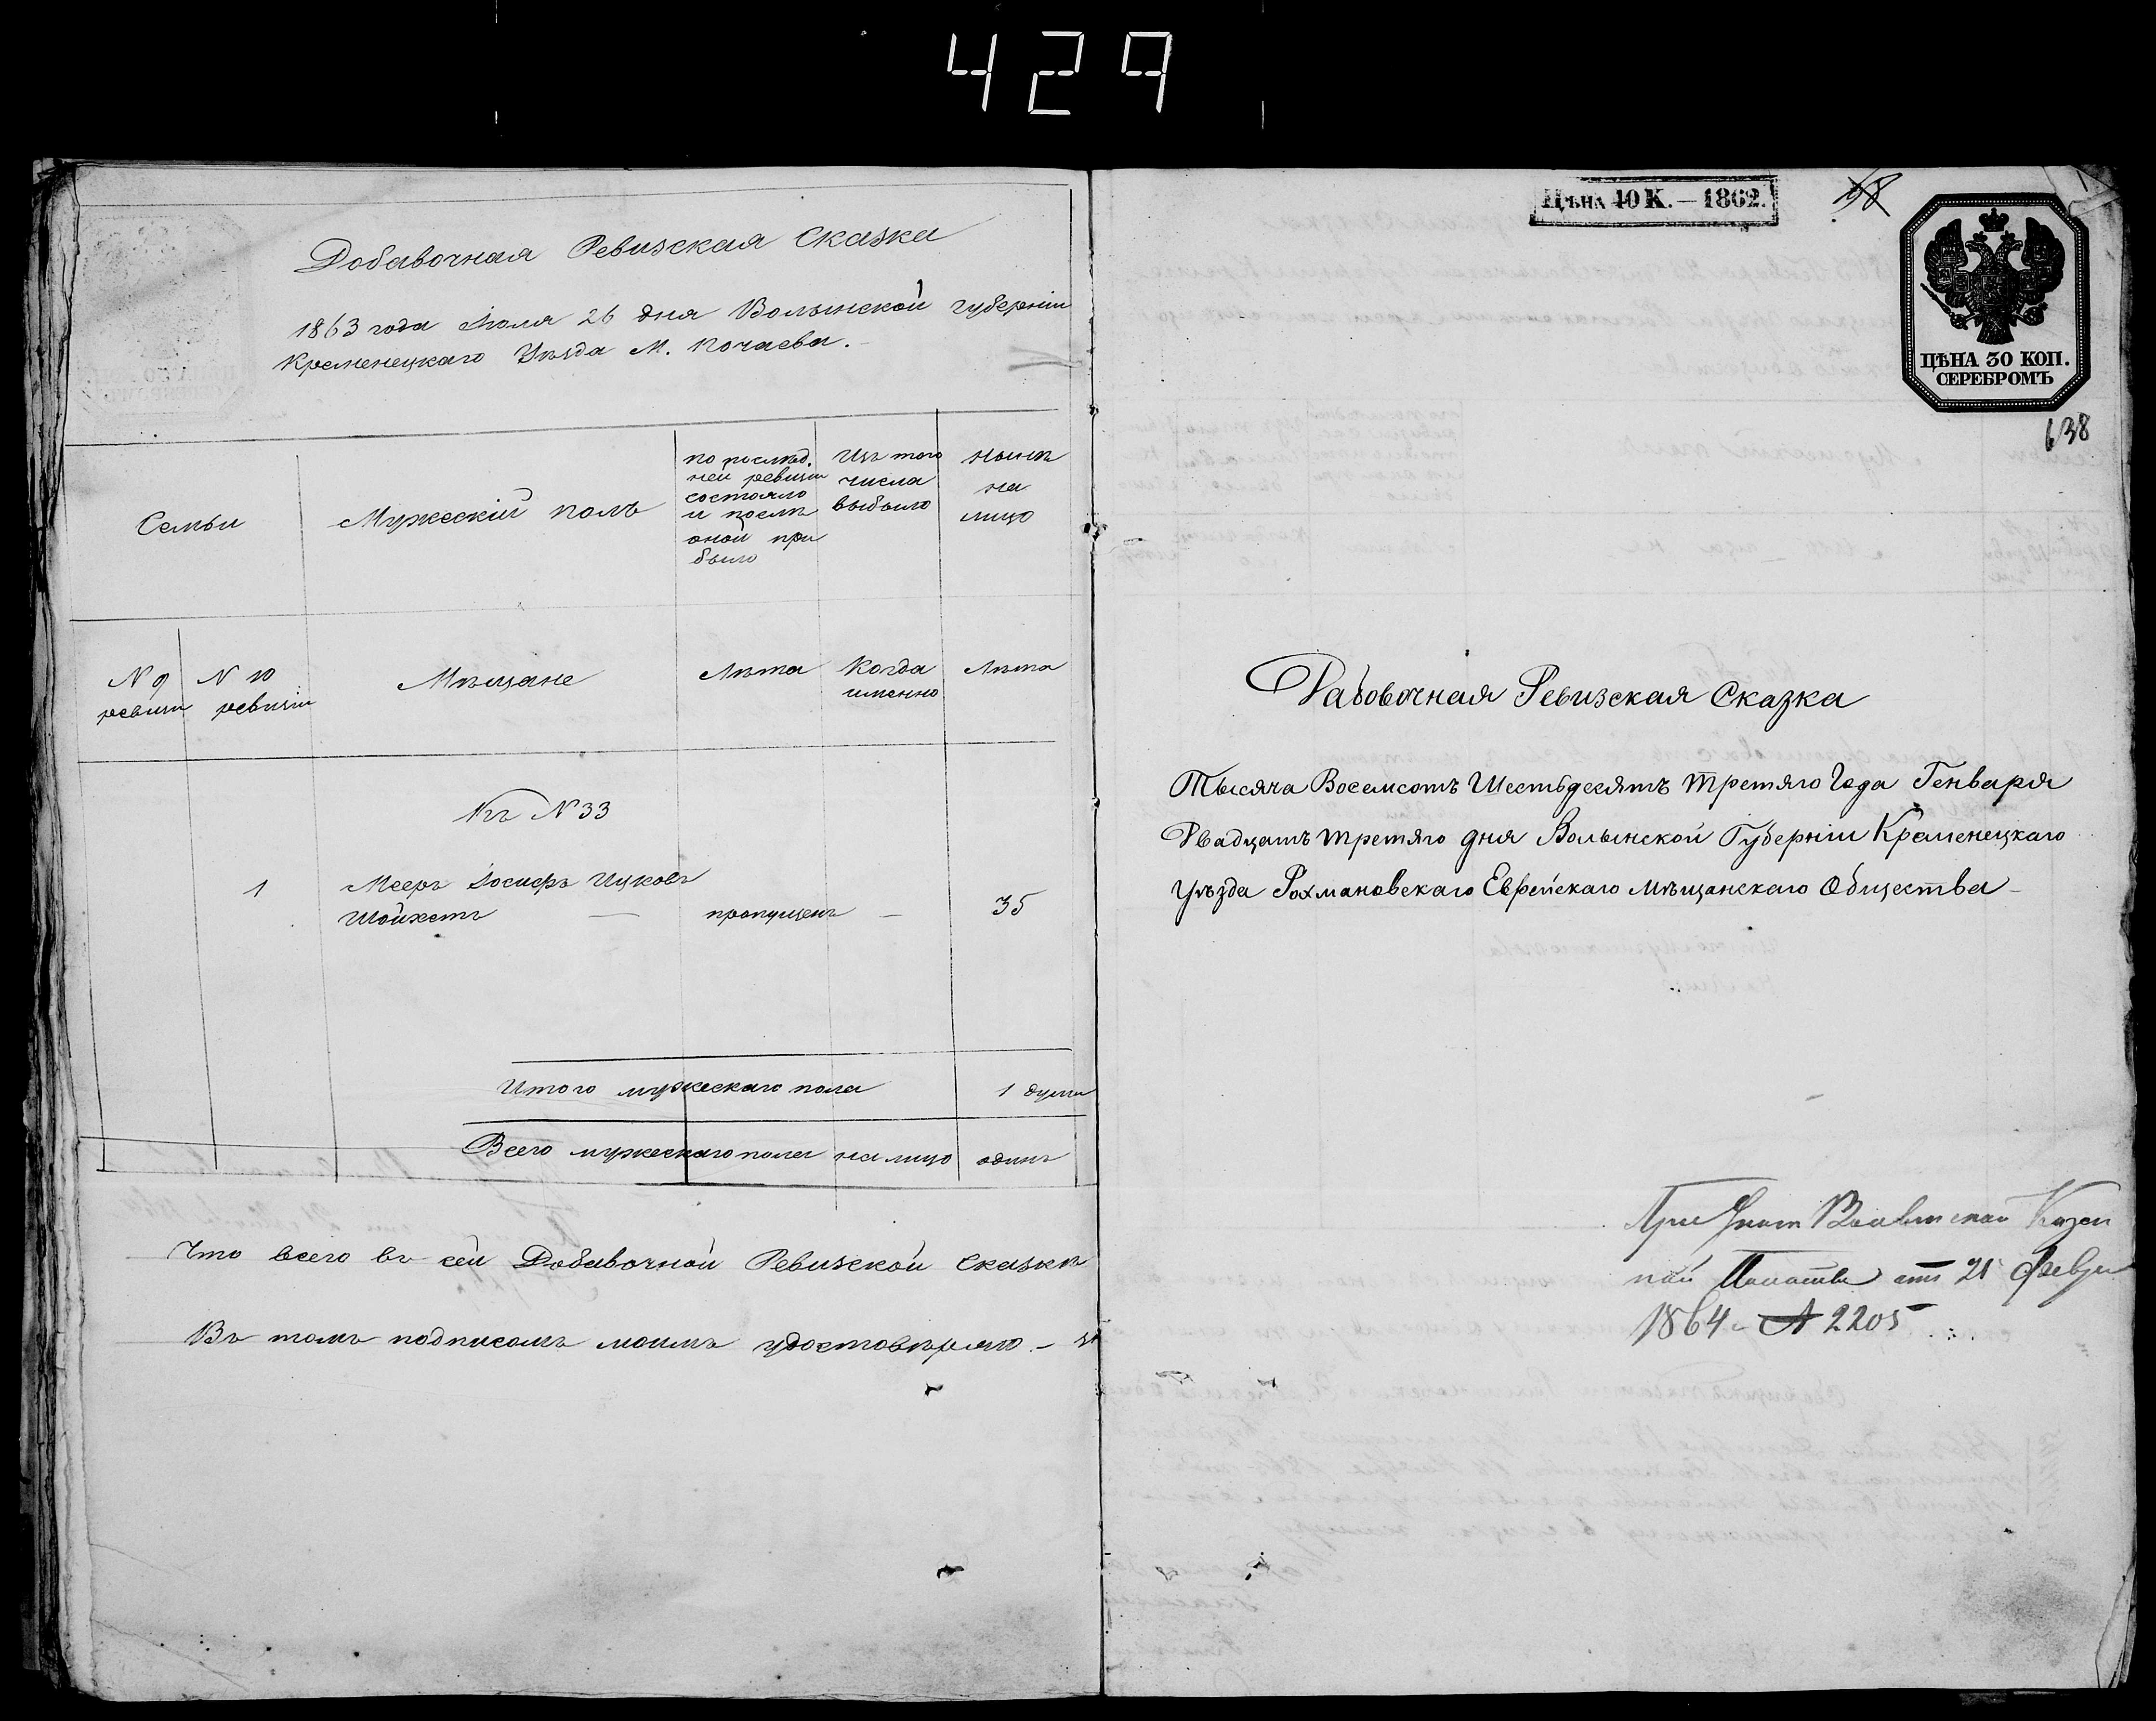 429
Добавочная Ревизская Сказка
1863 года Іюля 26 дня Волынской губерніи
Кременецкаго Уѣзда М. Почаева.
Семьи
Мужескій полъ
по послѣд.
ней ревизіи
состояло
и послѣ
оной при
было
Изъ того
числа
выбыло
нынѣ
на
лицо
N 9
ревизіи
N 10
ревизіи
Мѣщане
Лѣта
Когда
именно
Лѣта
Къ N 33
1
Мееръ Іосифъ Ицковъ
Шойхетъ — пропущенъ — 35
Итого мужескаго пола 1 душа
Всего мужескаго пола на лицо одинъ
Что всего въ сей Добавочной Ревизской Сказкѣ
Въ томъ подписомъ моимъ удостовѣряю. –
Цѣна 40 К. — 1862.
ЦѢНА 30 КОП.
СЕРЕБРОМЪ
638
Дабовочная Ревизская Сказка
Тысяча Восемсотъ Шестьдесятъ Третяго Года Генваря
Двадцатъ третяго дня Волынской Губерніи Кременецкаго
Уѣзда Рохмановскаго Еврейскаго Мѣщанскаго Общества
При Указѣ Волынской Казен
ной Палаты отъ 21 Февра
1864 № 2205